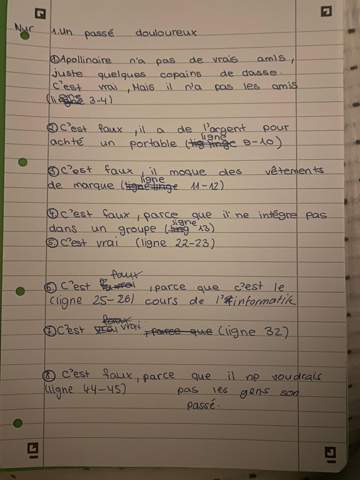 Nur 1.Un passé douloureux
①Apollinaire n'a pas de vrais amis,
juste quelques copains de dasse.
C'est vrai, Mais il n'a pas les amis
(ligne 3-4)
②C'est faux, il a de l'argent pour
achté un portable (ligne 9-10)
③C'est faux, il moque des vêtements
de marque (ligne 11-12)
④C'est faux, parce que il ne intégre pas
dans un groupe (ligne 13)
⑤C'est vrai (ligne 22-23)
⑥C'est faux, parce que c'est le
(ligne 25-26) cours de l'informatik
⑦C'est vrai (ligne 32)
⑧C'est faux, parce que il ne voudrais
(ligne 44-45) pas les gens son
passé.